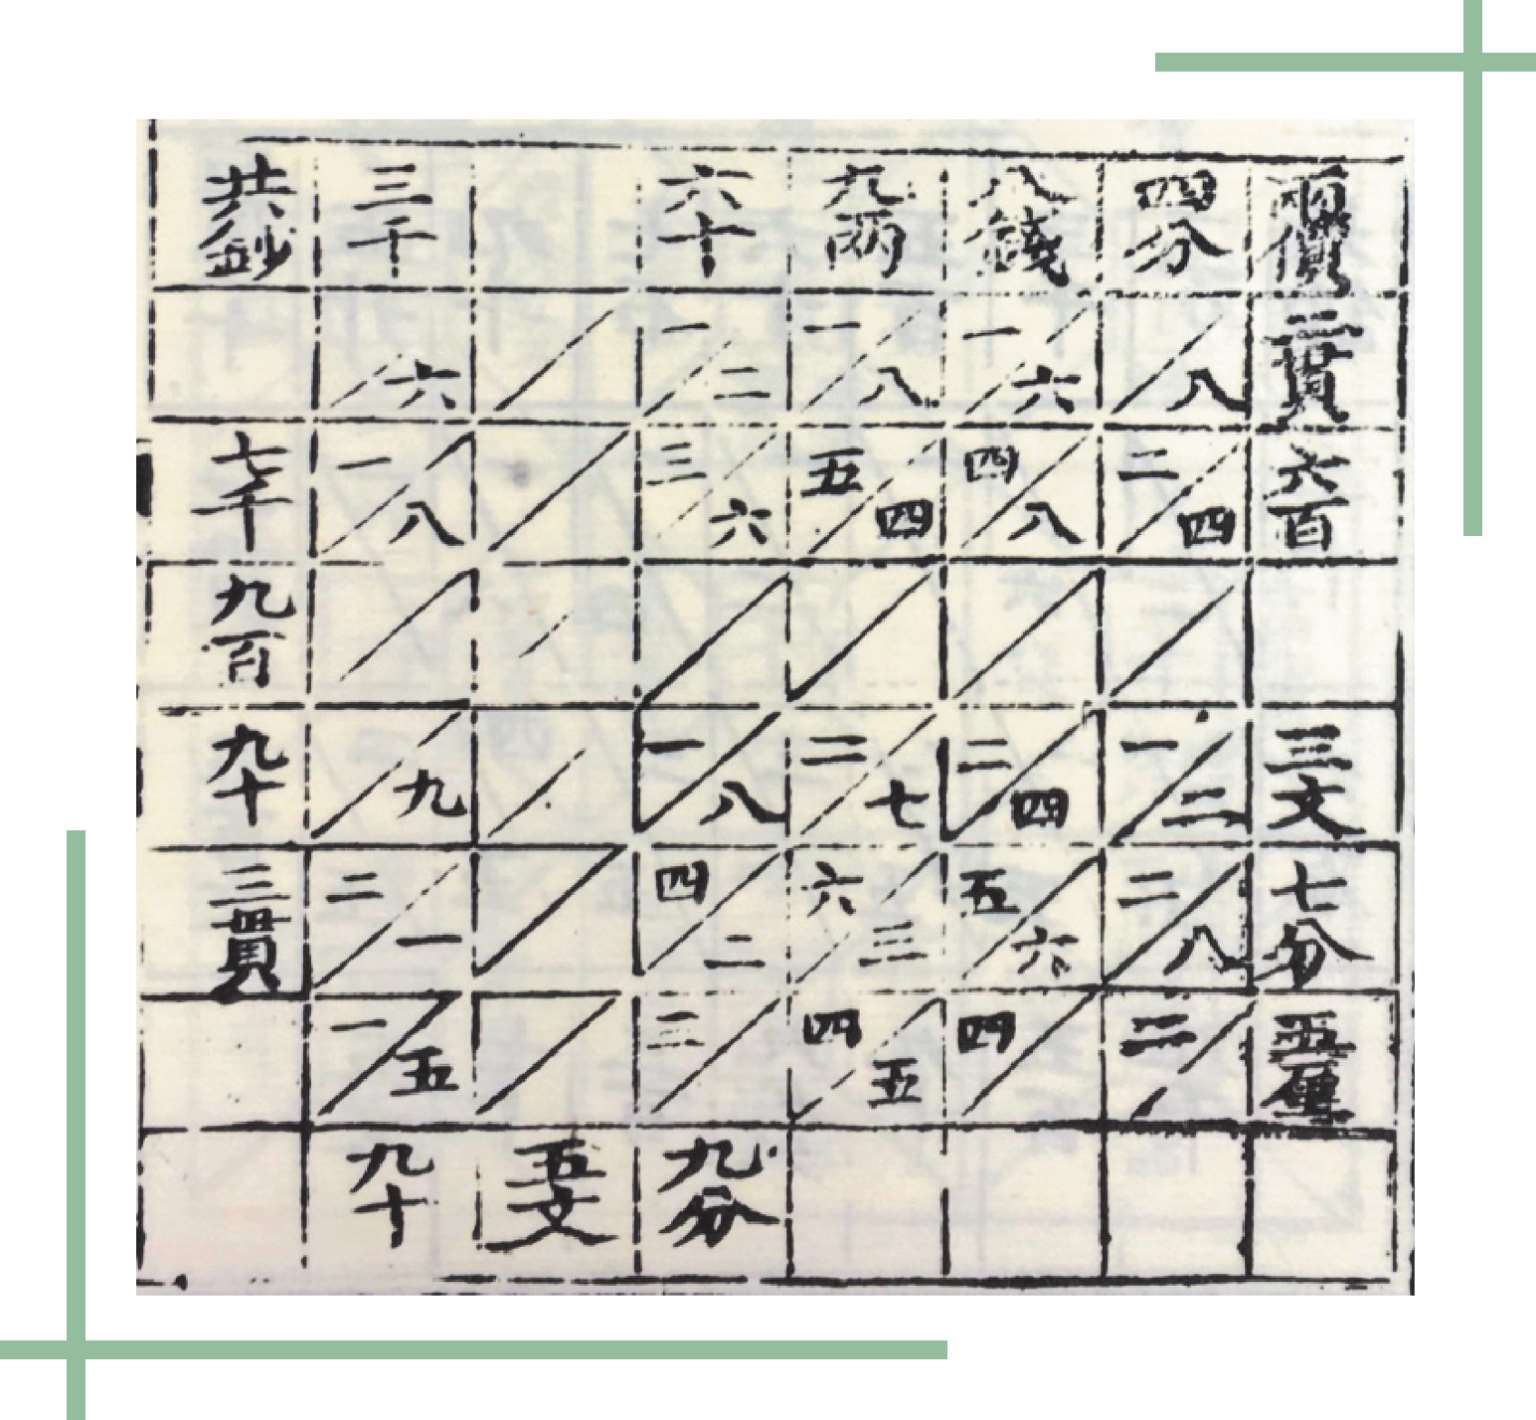 共鈔 三千 六十 九兩 八錢 四分 兩價
六 一 二 一 八 一 六 八 二貫
七千 一 八 三 六 五 四 四 八 二 四 六百
九百
九十 九 一 八 二 七 二 四 一 二 三文
三貫 二 一 四 二 六 三 五 六 二 八 七分
一 五 三 四 五 四 二 五厘
九十 五文 九分